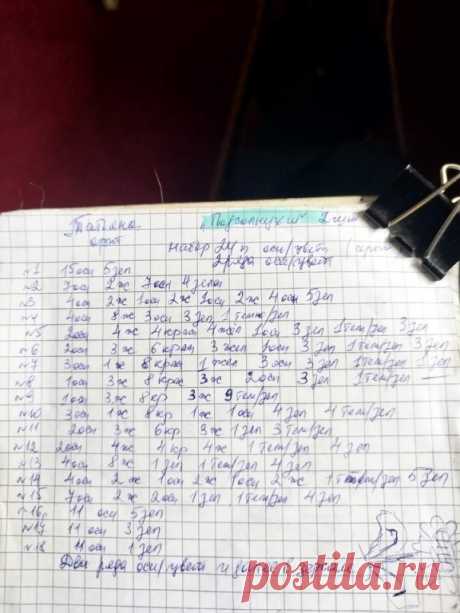 Татьяна „Подсолнухи" 2 шт
набор 24 п осн/цвета
2 ряда осн/цвет
№1 15 осн 5 зел
№2 7 осн 2 ж 7 осн 4 зел
№3 4 осн 2 ж 1 осн 2 ж 1 осн 2 ж 4 осн 5 зел
№4 4 осн 8 ж 3 осн 3 зел 1 тем/зел
№5 2 осн 4 ж 4 крас 4 жел 1 осн 3 зел 1 тем/зел 3 зел
№6 2 осн 3 ж 6 крас 3 жел 1 осн 3 зел 1 тем/зел 3 зел
№7 3 осн 1 ж 8 крас 1 жел 3 осн 3 зел 1 тем/зел зел
№8 1 осн 3 ж 8 крас 3 ж 2 осн 3 зел 1 тем/зел
№9 1 осн 3 ж 8 кр 3 ж 9 тем/зел
№10 3 осн 1 ж 8 кр 1 ж 1 осн 4 зел 4 тем/зел
№11 2 осн 3 ж 6 кр 3 ж 1 зел 3 тем/зел
№12 2 осн 4 ж 4 кр 4 ж 1 тем/зел 4 зел
№13 4 осн 8 ж 1 зел 1 тем/зел 4 зел
№14 4 осн 2 ж 1 осн 2 ж 1 осн 2 ж 1 тем/зел 5 зел
№15 7 осн 2 ж 2 осн 1 зел 1 тем/зел 4 зел
№16 11 осн 5 зел
№17 11 осн 3 зел
№18 11 осн 1 зел
Два ряда осн/цвета и
postila.ru